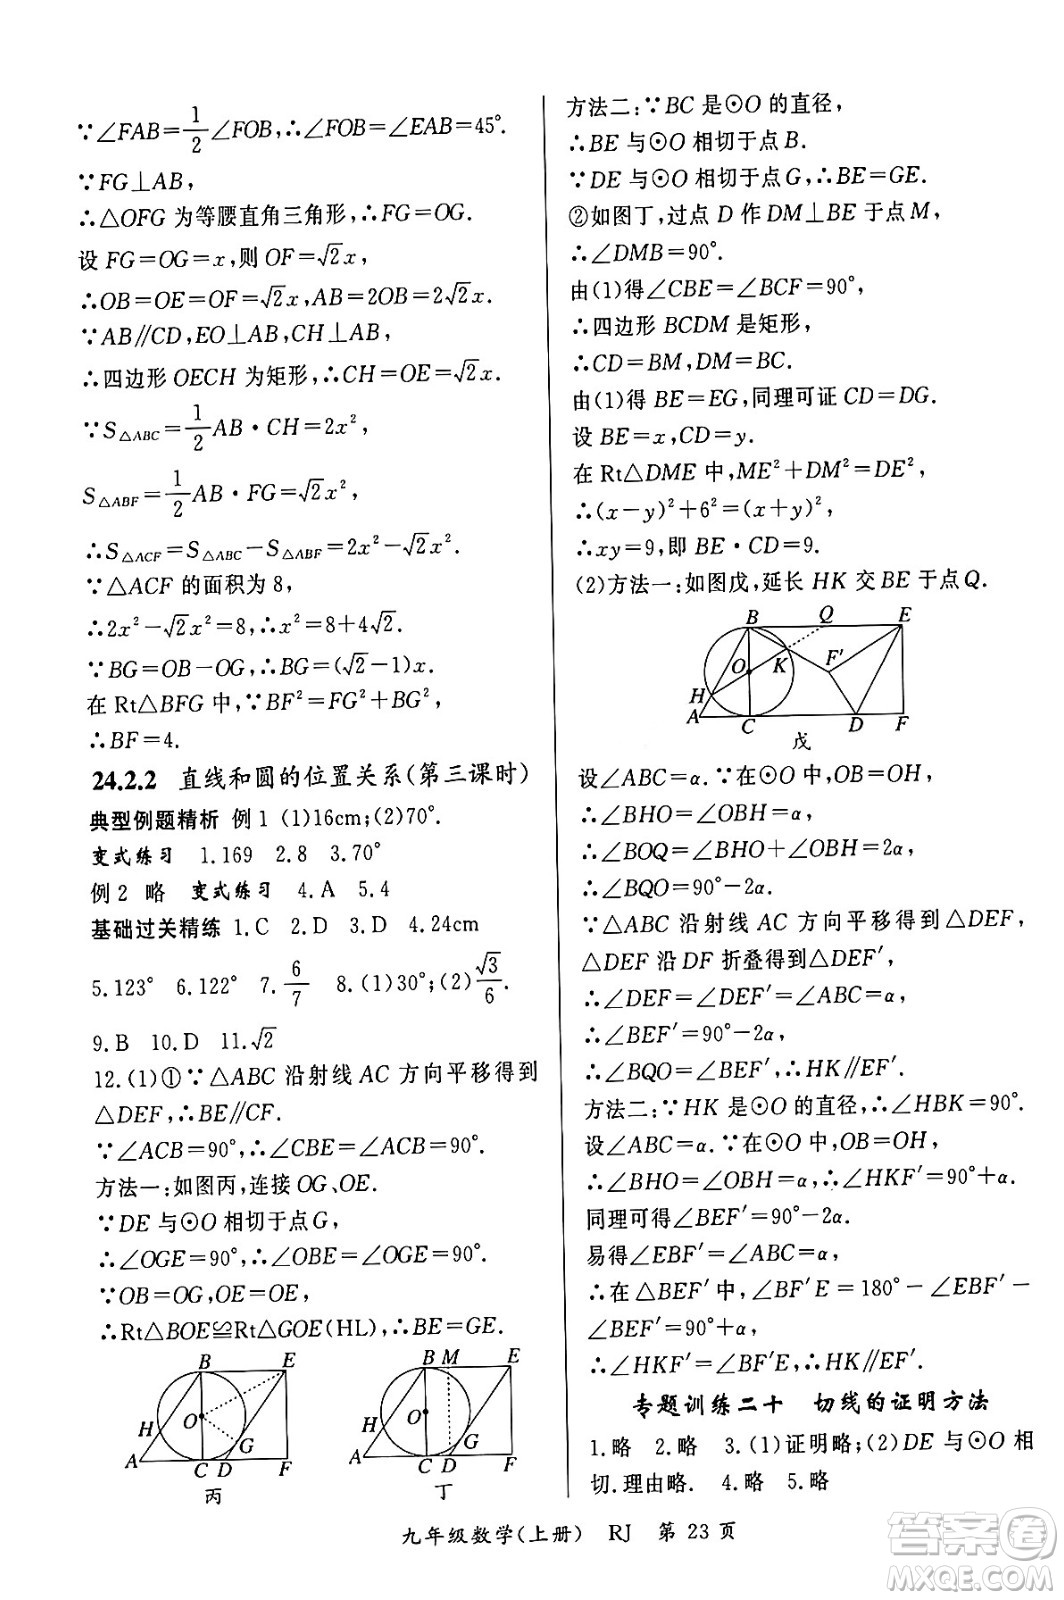 ∵∠FAB=1/2∠FOB,∴∠FOB=∠EAB=45°.
∵FG⊥AB,
∴△OFG 为等腰直角三角形,∴FG=OG.
设 FG=OG=x,则 OF=√2x,
∴OB=OE=OF=√2x,AB=2OB=2√2x.
∵AB∥CD,EO⊥AB,CH⊥AB,
∴四边形 OECH 为矩形,∴CH=OE=√2x.
∵S△ABC=1/2AB·CH=2x²,
S△ABF=1/2AB·FG=√2x²,
∴S△ACF=S△ABC-S△ABF=2x²-√2x².
∵△ACF 的面积为 8,
∴2x²-√2x²=8,∴x²=8+4√2.
∵BG=OB-OG,∴BG=(√2-1)x.
在 Rt△BFG 中,∵BF²=FG²+BG²,
∴BF=4.
24.2.2 直线和圆的位置关系(第三课时)
典型例题精析 例 1 (1)16cm;(2)70°.
变式练习 1.169 2.8 3.70°
例 2 略 变式练习 4.A 5.4
基础过关精练 1.C 2.D 3.D 4.24cm
5.123° 6.122° 7.6/7 8.(1)30°;(2)√3/6.
9.B 10.D 11.√2
12.(1)①∵△ABC 沿射线 AC 方向平移得到
△DEF,∴BE∥CF.
∵∠ACB=90°,∴∠CBE=∠ACB=90°.
方法一:如图丙,连接 OG、OE.
∵DE 与⊙O 相切于点 G,
∴∠OGE=90°,∴∠OBE=∠OGE=90°.
∵OB=OG,OE=OE,
∴Rt△BOE≌Rt△GOE(HL),∴BE=GE.
B E
H O G
A C D F
丙
B M E
H O G
A C D F
丁
方法二:∵BC 是⊙O 的直径,
∴BE 与⊙O 相切于点 B.
∵DE 与⊙O 相切于点 G,∴BE=GE.
②如图丁,过点 D 作 DM⊥BE 于点 M,
∴∠DMB=90°.
由(1)得∠CBE=∠BCF=90°,
∴四边形 BCDM 是矩形,
∴CD=BM,DM=BC.
由(1)得 BE=EG,同理可证 CD=DG.
设 BE=x,CD=y.
在 Rt△DME 中,ME²+DM²=DE²,
∴(x-y)²+6²=(x+y)²,
∴xy=9,即 BE·CD=9.
(2)方法一:如图戊,延长 HK 交 BE 于点 Q.
B Q E
O K F′
H
A C D F
戊
设∠ABC=α.∵在⊙O 中,OB=OH,
∴∠BHO=∠OBH=α,
∴∠BOQ=∠BHO+∠OBH=2α,
∴∠BQO=90°-2α.
∵△ABC 沿射线 AC 方向平移得到△DEF,
△DEF 沿 DF 折叠得到△DEF′,
∴∠DEF=∠DEF′=∠ABC=α,
∴∠BEF′=90°-2α,
∴∠BQO=∠BEF′,∴HK∥EF′.
方法二:∵HK 是⊙O 的直径,∴∠HBK=90°.
设∠ABC=α.∵在⊙O 中,OB=OH,
∴∠BHO=∠OBH=α,∴∠HKF′=90°+α.
同理可得∠BEF′=90°-2α.
易得∠EBF′=∠ABC=α,
∴在△BEF′中,∠BF′E=180°-∠EBF′-
∠BEF′=90°+α,
∴∠HKF′=∠BF′E,∴HK∥EF′.
专题训练二十 切线的证明方法
1.略 2.略 3.(1)证明略;(2)DE 与⊙O 相
切.理由略. 4.略 5.略
九年级数学(上册) RJ 第 23 页
答案卷
MXQE.COM